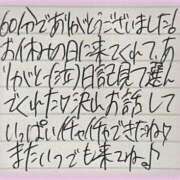 60分でおりがとうございました!
お休みの日に来てくれて、あ
りがとー(泣)日記見て選ん
でくれたり沢山お話しして
いっぱいイチャイチャできたね♡
またいつでも来てね♪